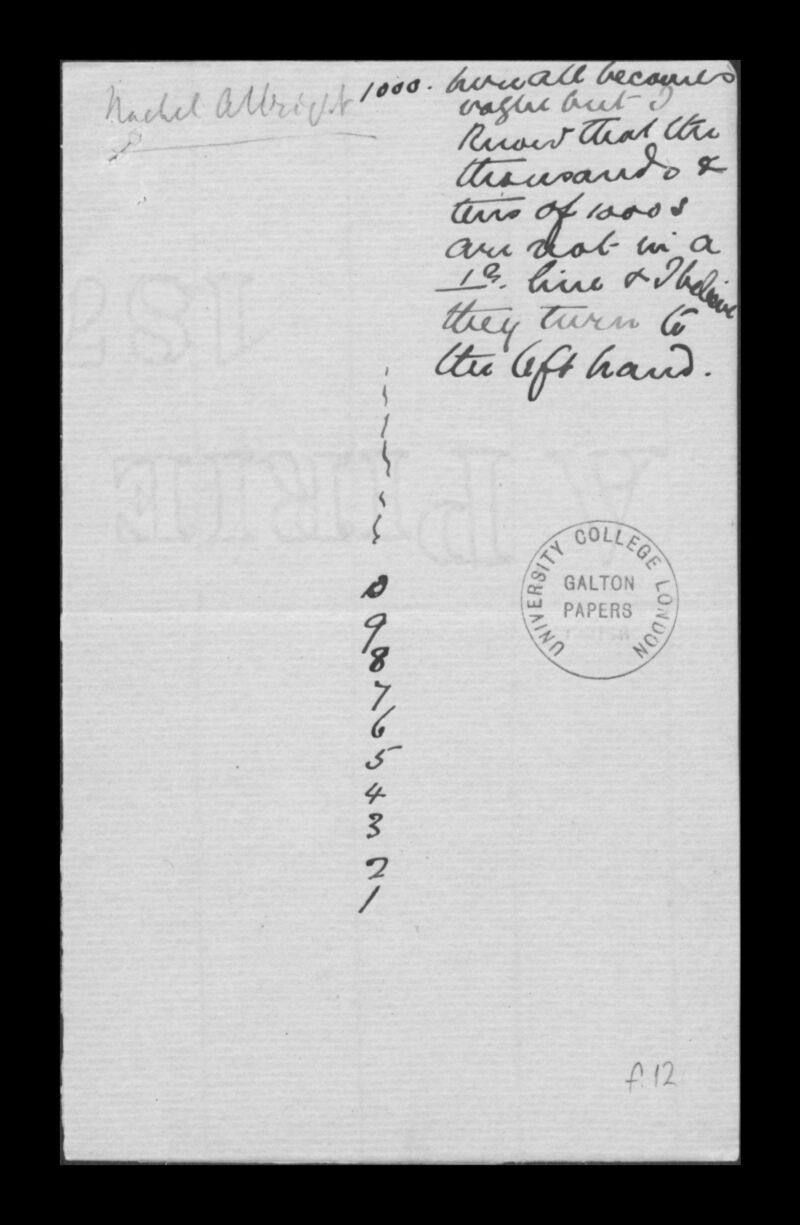 Rachel Albright
1000. here all becomes
vague but I
Know that the
thousands &
tens of 1000s
are not in a
line & I believe
they turn to
the left hand.
9
8
7
6
5
4
3
2
1
UNIVERSITY COLLEGE LONDON
GALTON
PAPERS
f.12